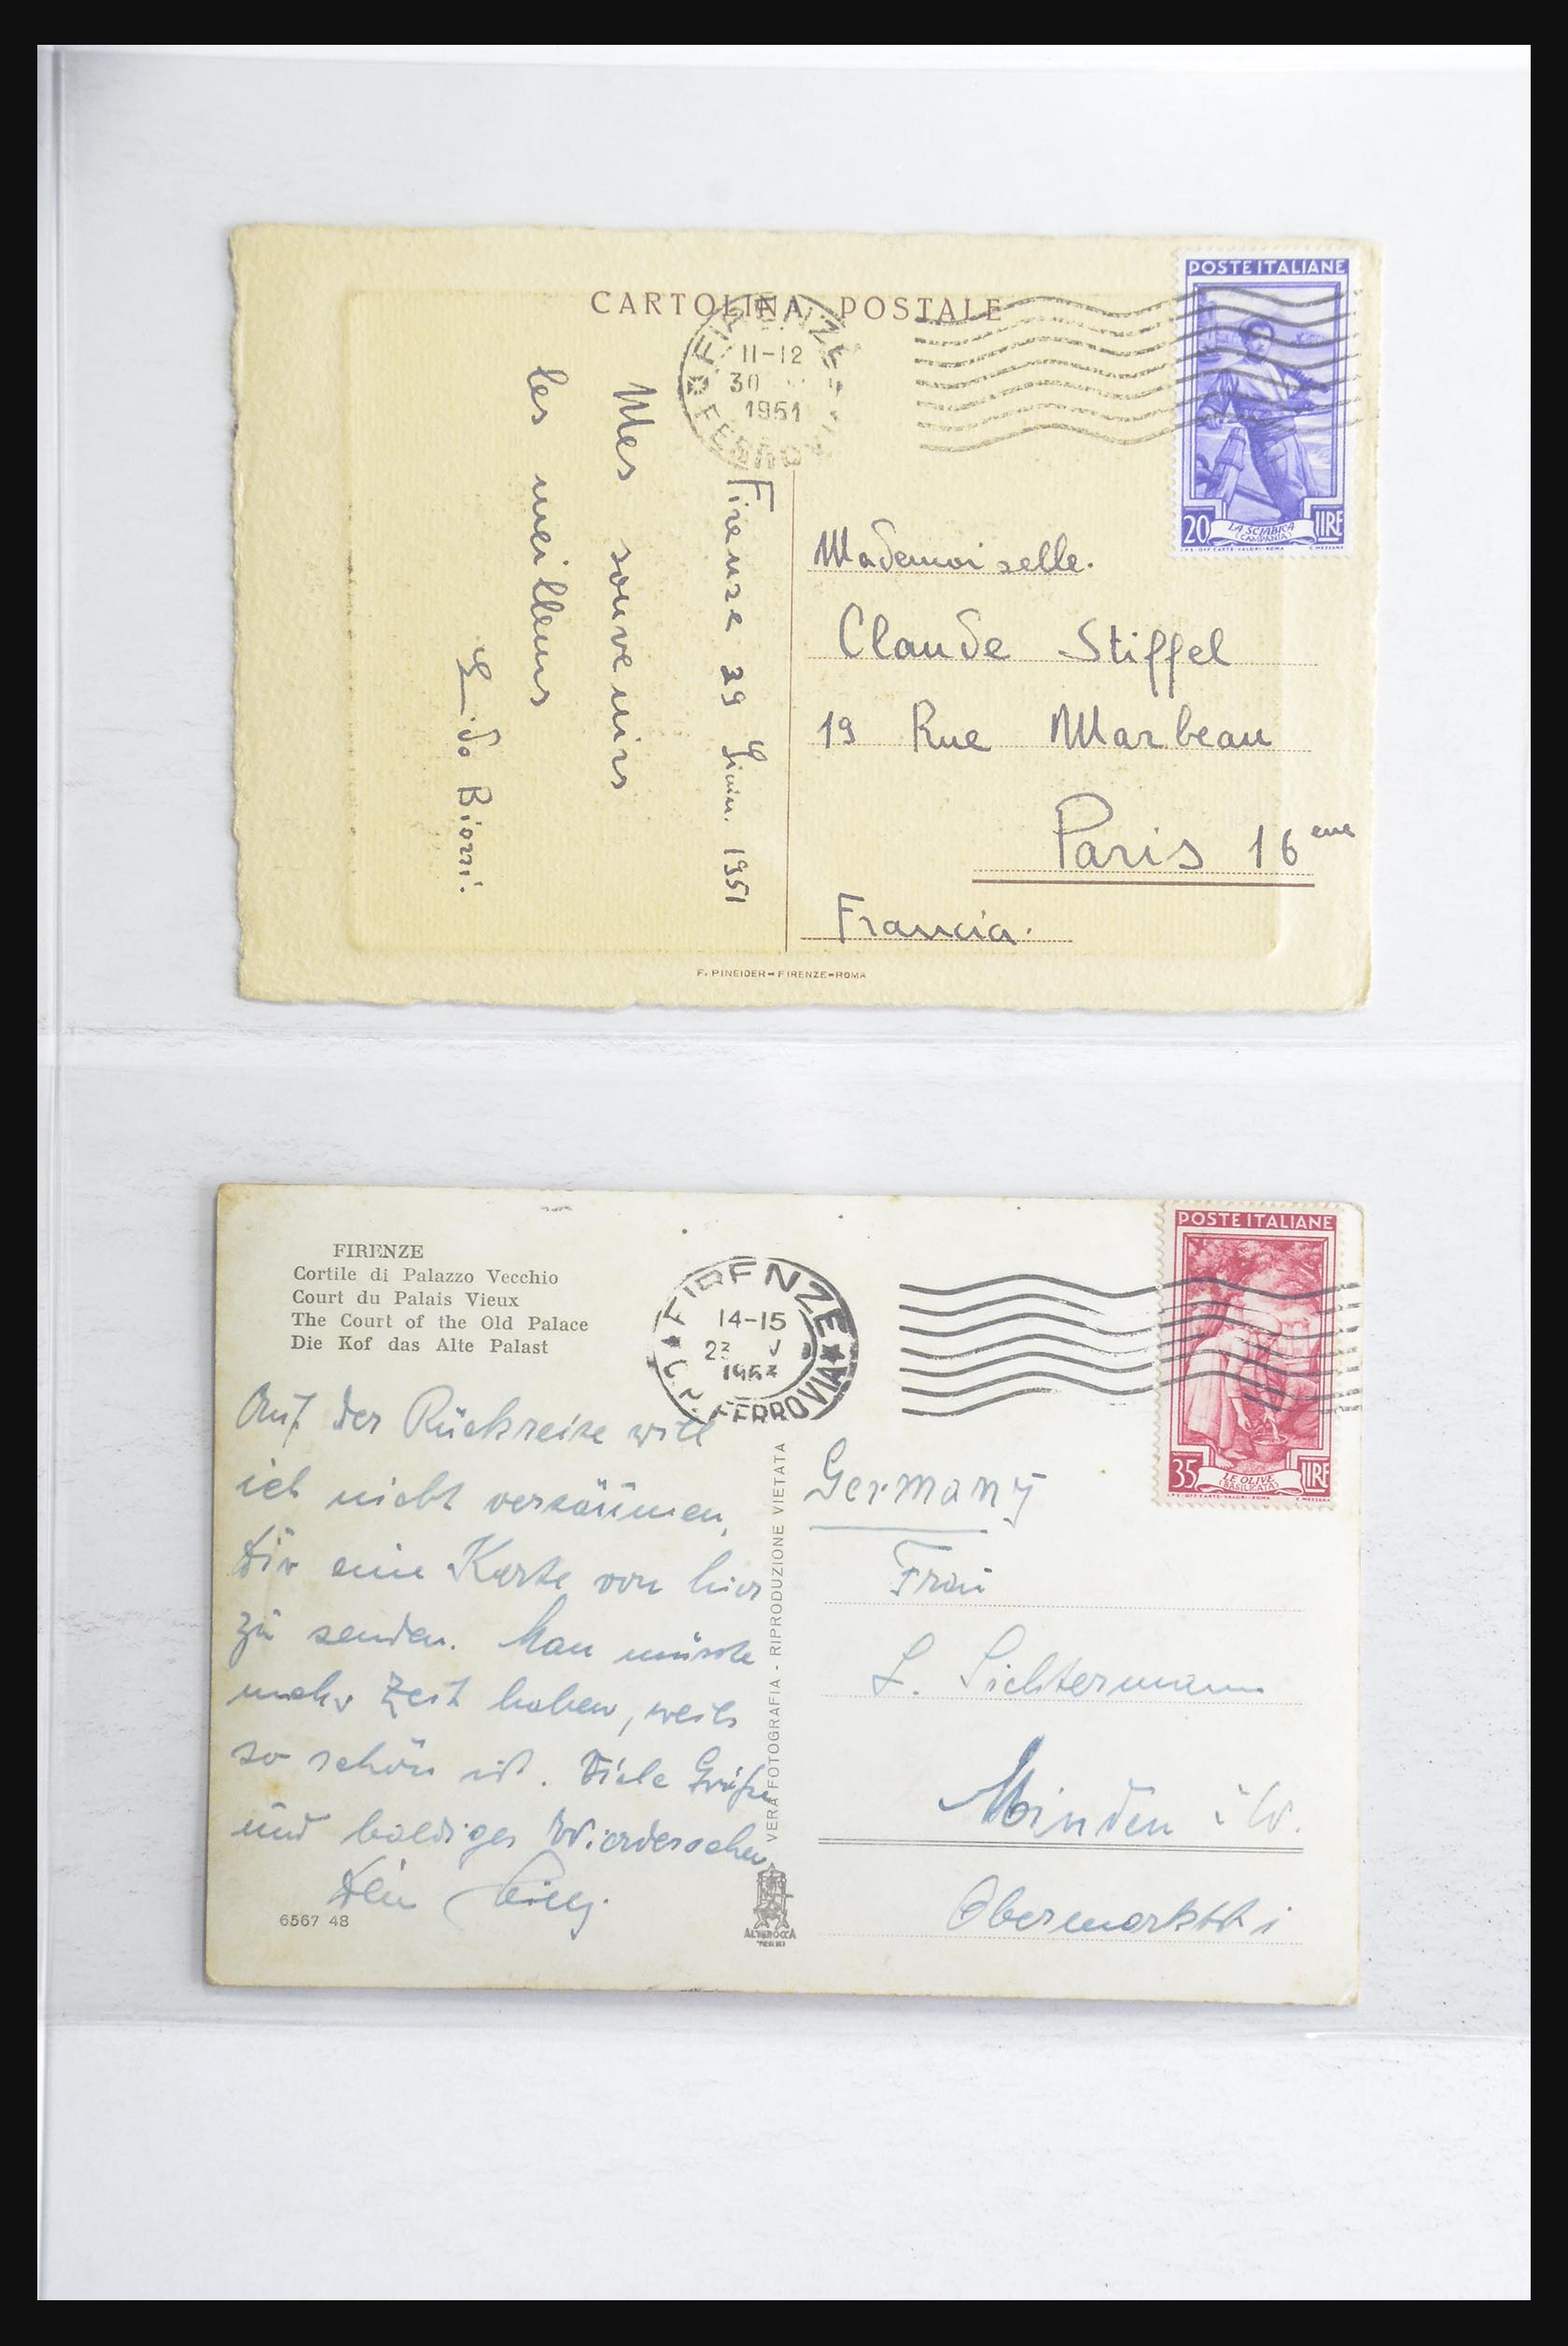 CARTOLINA POSTALE
FIRENZE
11-12
30
1951
FERROVIA
POSTE ITALIANE
20 LA SCIABICA LIRE
(CAMPANIA)
Firenze 29 1951
Mes souvenirs
les meilleurs
Mademoiselle.
Claude Stiffel
19 Rue Marbeau
Paris 16 eme
Francia.
F. PINEIDER-FIRENZE-ROMA
FIRENZE
Cortile di Palazzo Vecchio
Court du Palais Vieux
The Court of the Old Palace
Die Kof das Alte Palast
FIRENZE
14-15
FERROVIA
POSTE ITALIANE
35 LE OLIVE LIRE
(BASILICATA)
Auf der Rückreise will
ich nicht versäumen,
Dir eine Karte von hier
zu senden. Man müsste
mehr Zeit haben, weils
so schön ist. Viele Grüße
und baldiges Wiedersehen
Dein
6567 48
VERA FOTOGRAFIA - RIPRODUZIONE VIETATA
ALTEROCCA
TERNI
Germany
Frau
L. Sichtermann
Minden i W.